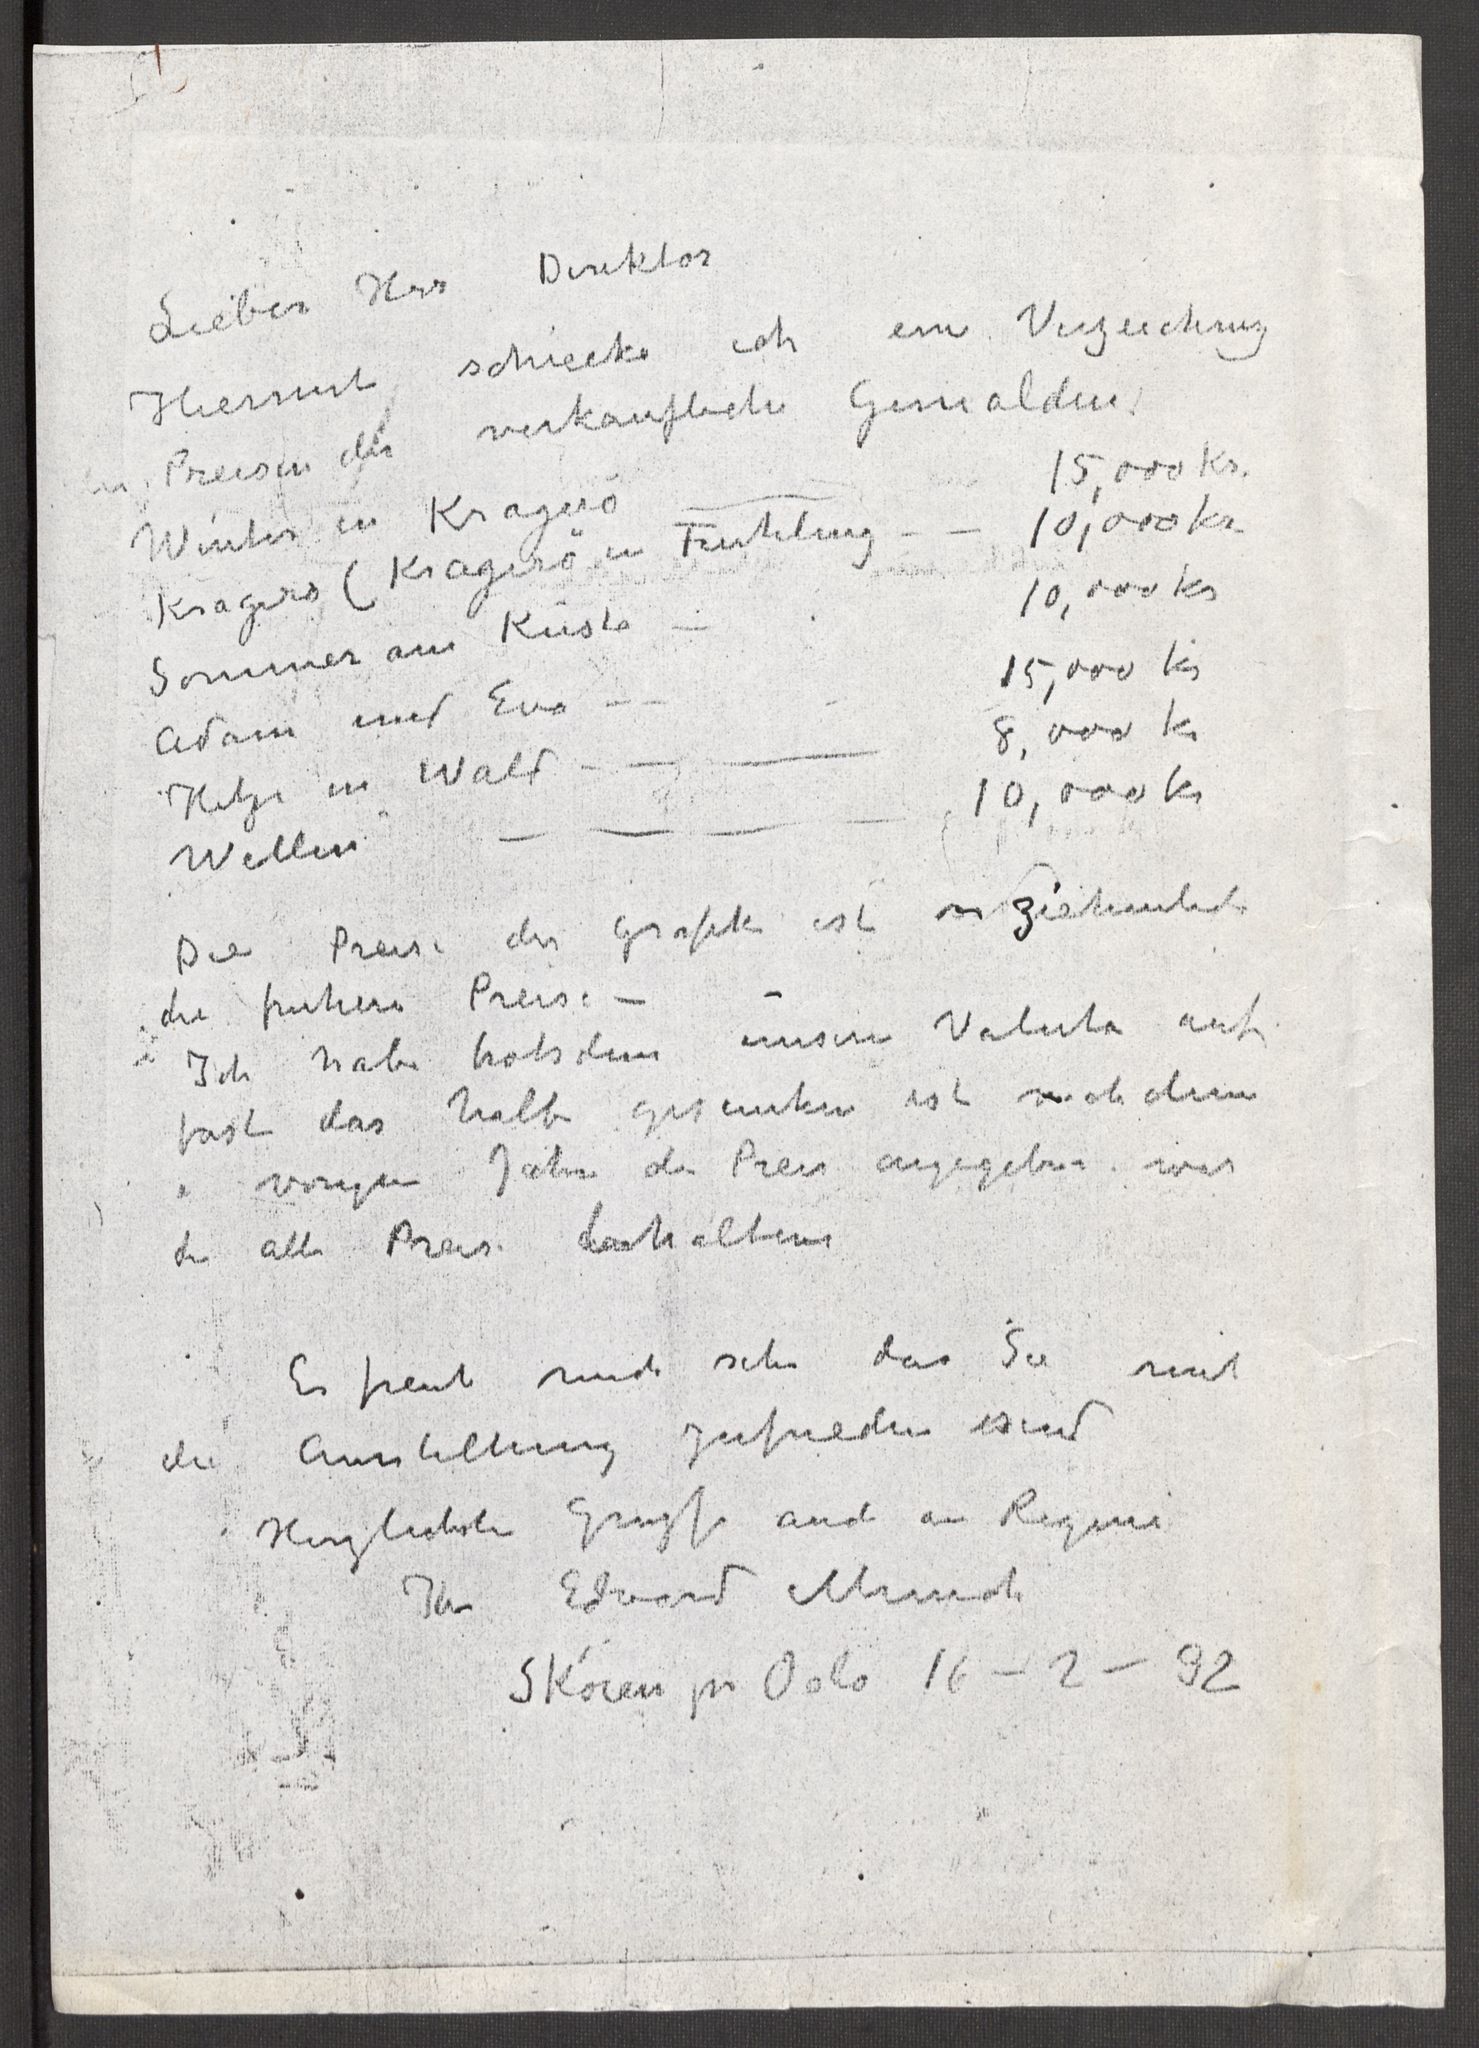 Lieber Herr Direktor
Hiermit schicke ich ein Verzeichnuz
Preisen der verkaufliche Gemalden.
Winter in Kragerö 15,000 Kr.
Kragerö (Kragerö in Fruhling – – 10,000 Kr
Sommer am Küste – 10,000 Kr
Adam und Eva – – 15,000 kr
Holz im Wald – – — 8,000 kr
Wellen – – – – 10,000 kr
Die Preise der Grafik ist
die fruhere Preise –
Ich habe trotsdem unsere Valuta auf
fast das halbe gesunken ist nach dem
vorigen Jahre der Preis angegeben war
die alte Preise
Es freut mich sehr das Sie mit
die Ausstellung zufrieden sind
Herzlichste Grusse auch an Regine
Ihr Edvard Munch
Sköien pr Oslo 16 – 2 – 32